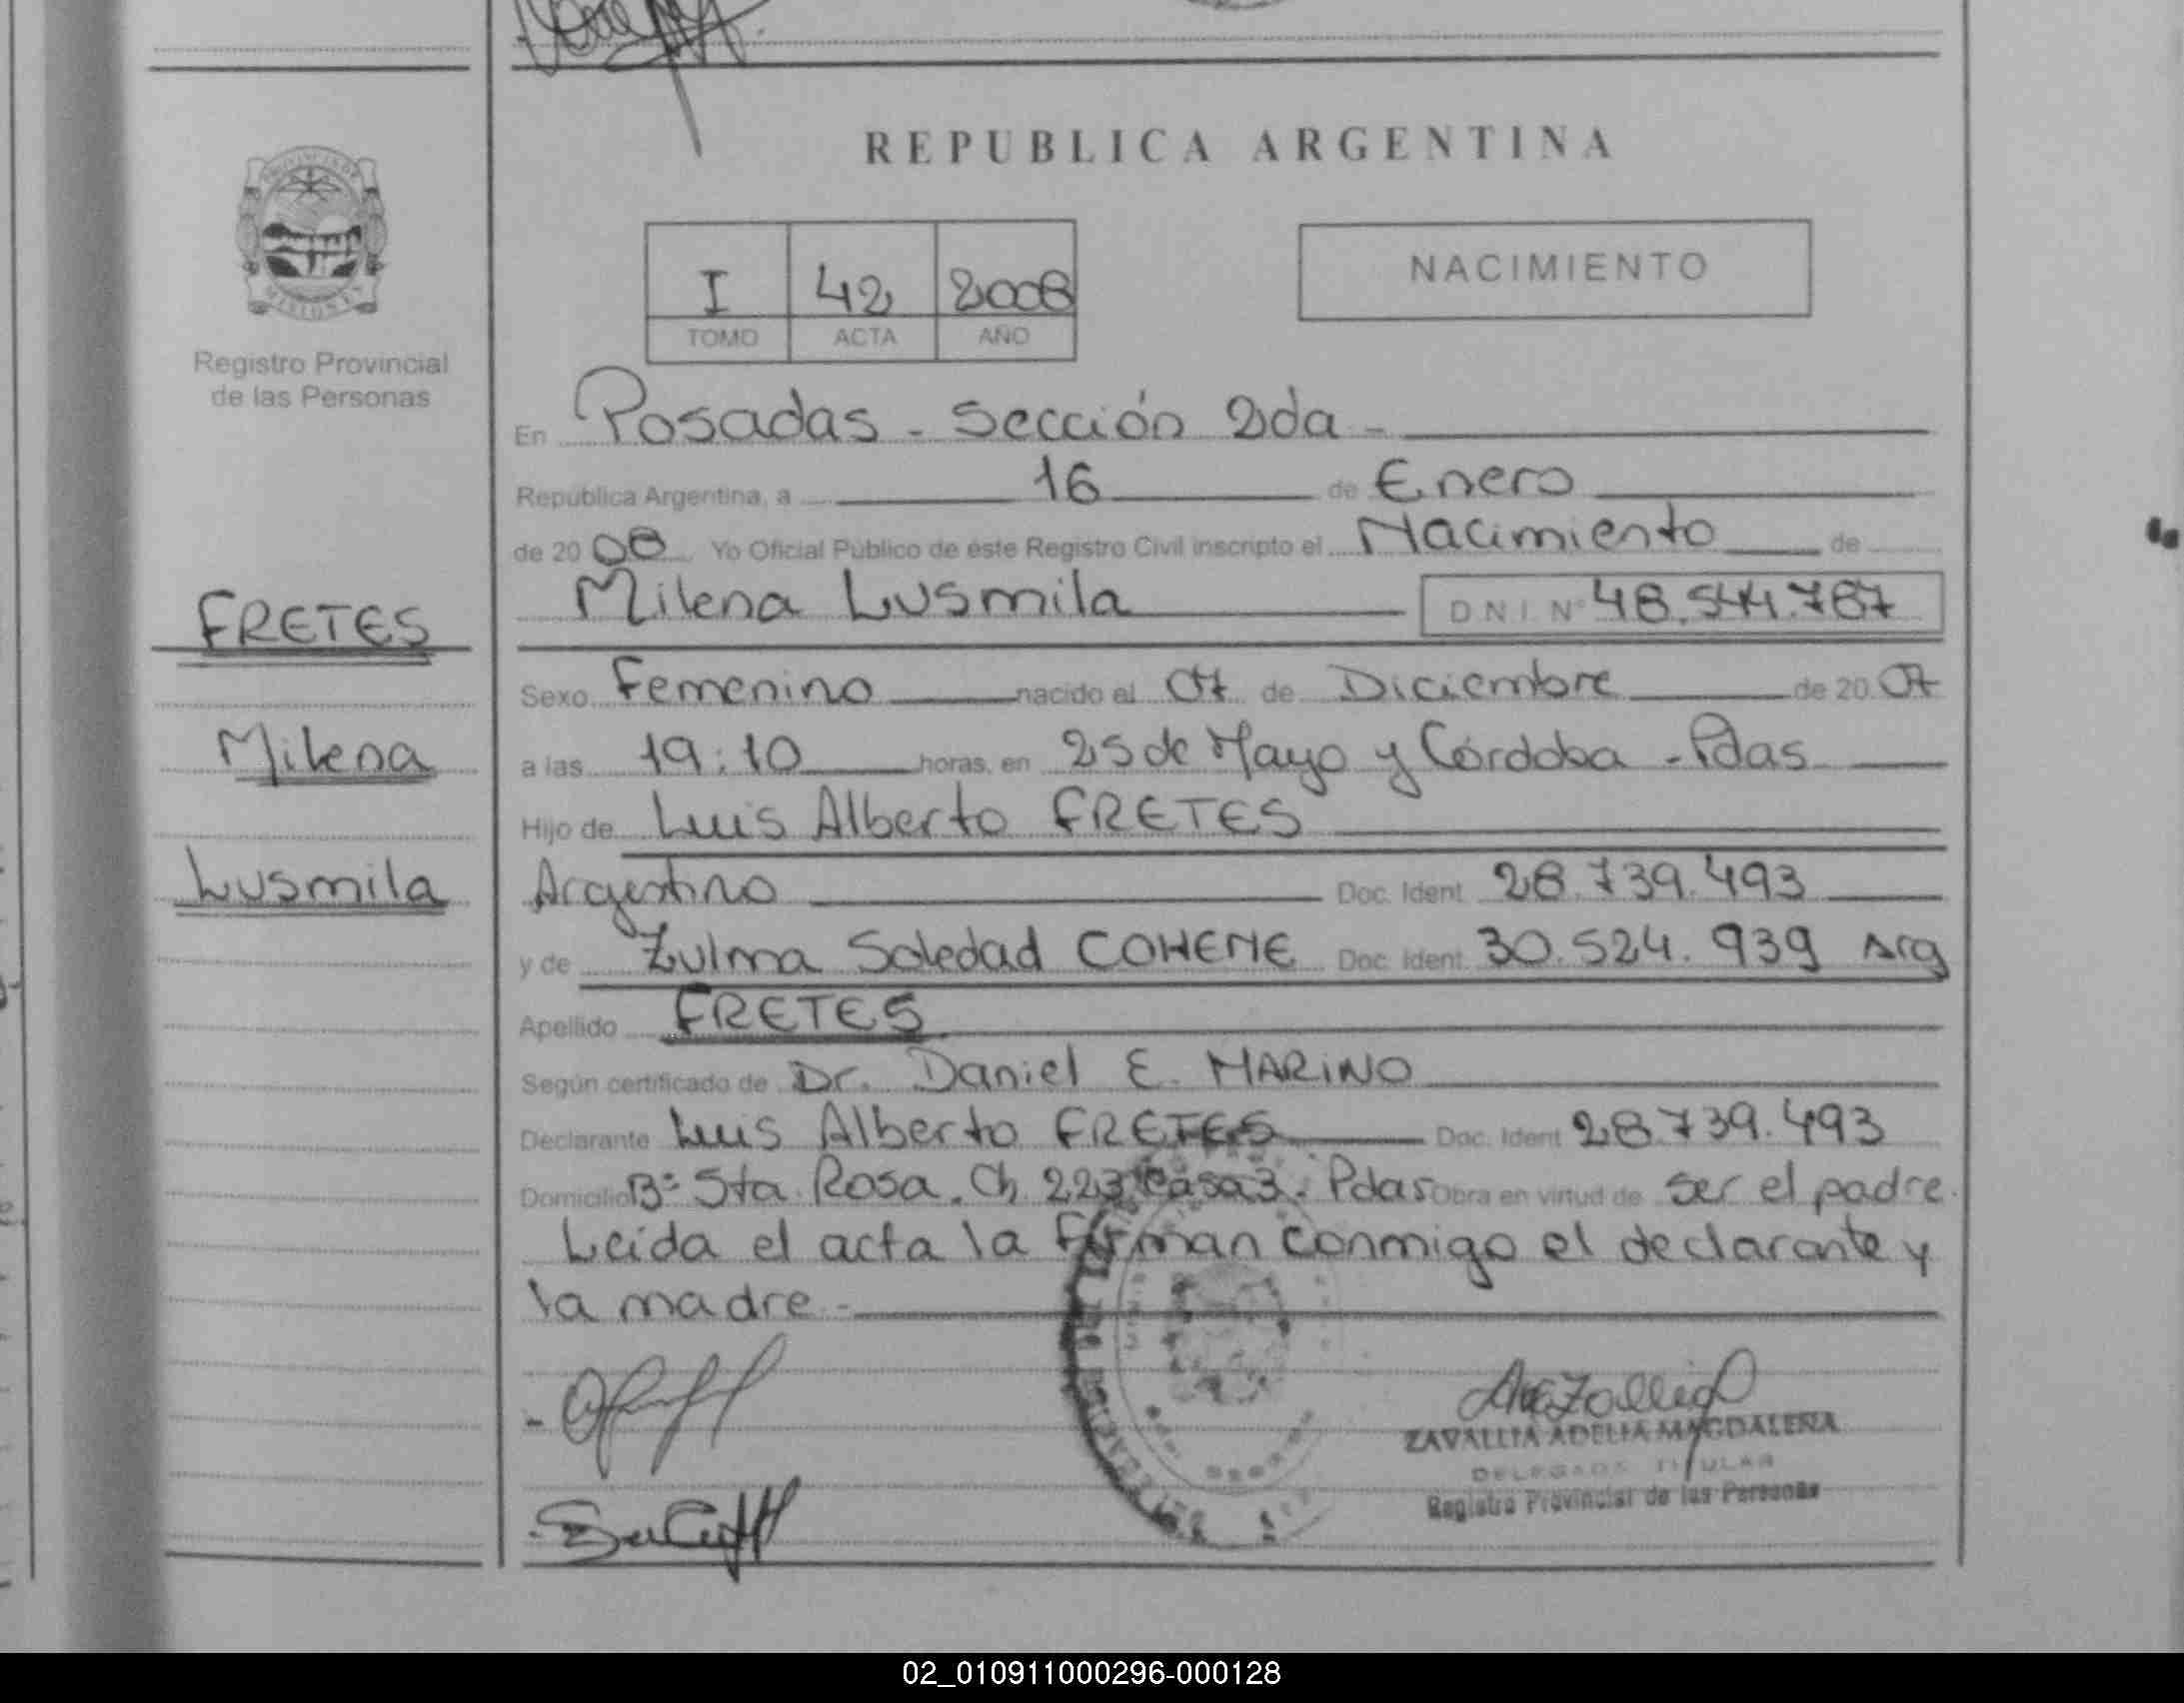 REPUBLICA ARGENTINA
PROVINCIA DE
MISIONES
Registro Provincial
de las Personas
I 42 2008
TOMO ACTA AÑO
NACIMIENTO
En Posadas - Sección 2da -
República Argentina, a 16 de Enero
de 20 08 Yo Oficial Público de éste Registro Civil inscripto el Nacimiento de
Milena Lusmila D.N.I. Nº 48.544.787
FRETES
Sexo Femenino nacido el 07 de Diciembre de 20 07
Milena
a las 19:10 horas, en 25 de Mayo y Córdoba - Pdas
Hijo de Luis Alberto FRETES
Lusmila
Argentino Doc. Ident. 28.739.493
y de Zulma Soledad COHENE Doc. Ident. 30.524.939 Arg
Apellido FRETES
Según certificado de Dr. Daniel E. MARINO
Declarante Luis Alberto FRETES Doc. Ident 28.739.493
Domicilio Bº Sta. Rosa. Ch 223 Casa 3. Pdas Obra en virtud de ser el padre.
Leida el acta la firman conmigo el declarante y
la madre.-
ZAVALLIA ADELIA MAGDALENA
DELEGADA TITULAR
Registro Provincial de las Personas
02_010911000296-000128